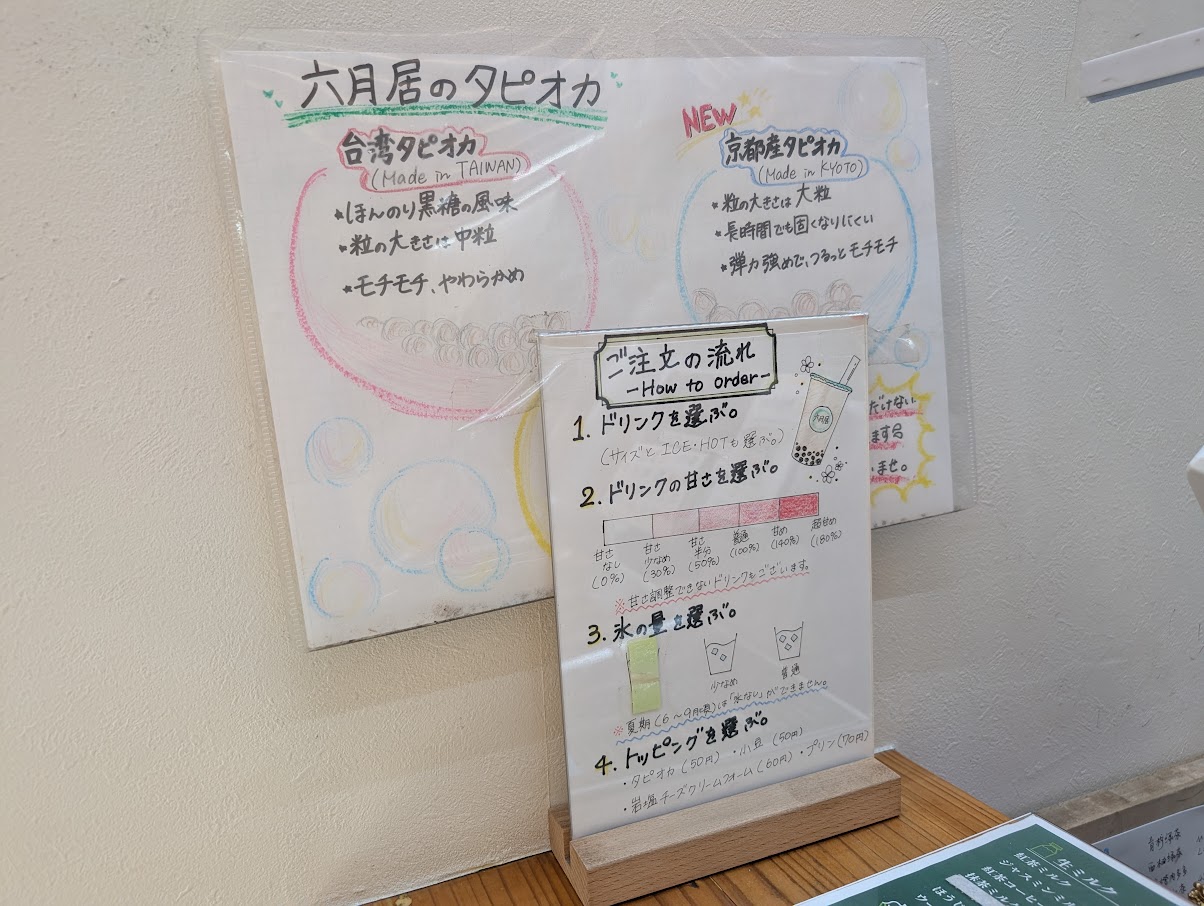 六月居のタピオカ
台湾タピオカ
(Made in TAIWAN)
★ほんのり黒糖の風味
★粒の大きさは中粒
★モチモチ、やわらかめ
NEW
京都産タピオカ
(Made in KYOTO)
★粒の大きさは大粒
★長時間でも固くなりにくい
★弾力強めで、つるっとモチモチ
だけない
ます
ませ。
ご注文の流れ
-How to order-
六月居
1. ドリンクを選ぶ。
(サイズと ICE・HOTも選ぶ。)
2. ドリンクの甘さを選ぶ。
甘さなし (0%)
甘さ少なめ (30%)
甘さ半分 (50%)
普通 (100%)
甘め (140%)
超甘め (180%)
※甘さ調整できないドリンクもございます。
3. 氷の量を選ぶ。
少なめ
普通
※夏期(6〜9月頃)は「氷なし」ができません。
4. トッピングを選ぶ。
・タピオカ(50円) ・小豆(50円)
・岩塩チーズクリームフォーム(60円) ・プリン(70円)
生ミルク
紅茶ミルク
ジャスミンミル
紅茶コーヒー
抹茶ミルク
ほうじ